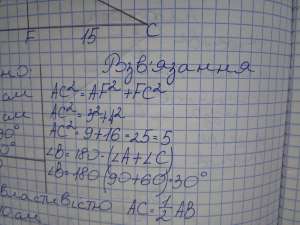 F 15 C
Розв'язання
но:
см AC² = AF² + FC²
см AC² = 3² + 4²
90° AC² = 9 + 16 = 25 = 5
0° ∠B = 180 - (∠A + ∠C)
∠B = 180 (90 + 60) = 30°
властивістю AC = 1/2 AB